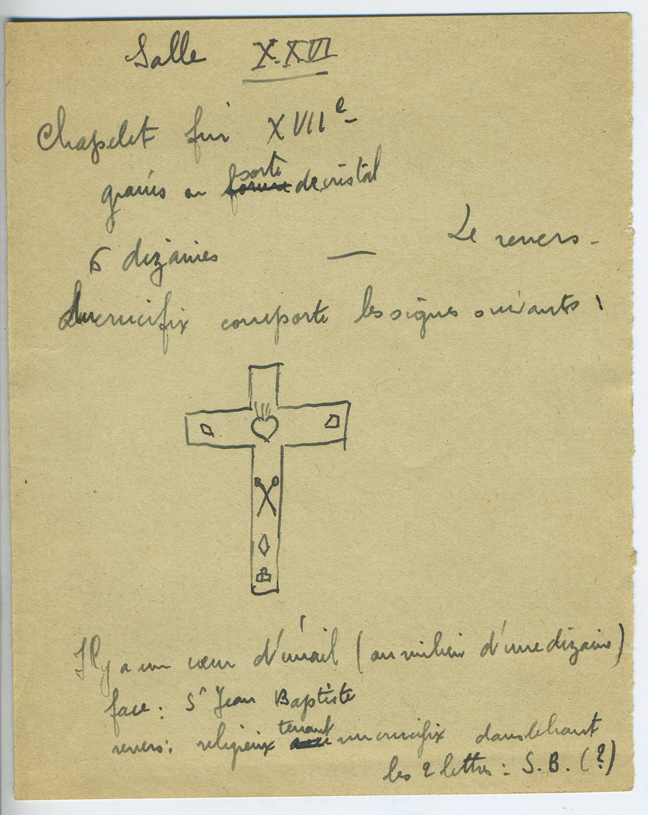 Salle XXVI
Chapelet fin XVIIe
grains en forme sorte de cristal
6 dizaines — Le revers
du crucifix comporte les signes suivants :
Il y a un cœur d'émail (au milieu d'une dizaine)
face : St Jean Baptiste
revers : religieux tenant un crucifix dans le haut
les 2 lettres : S.B. (?)